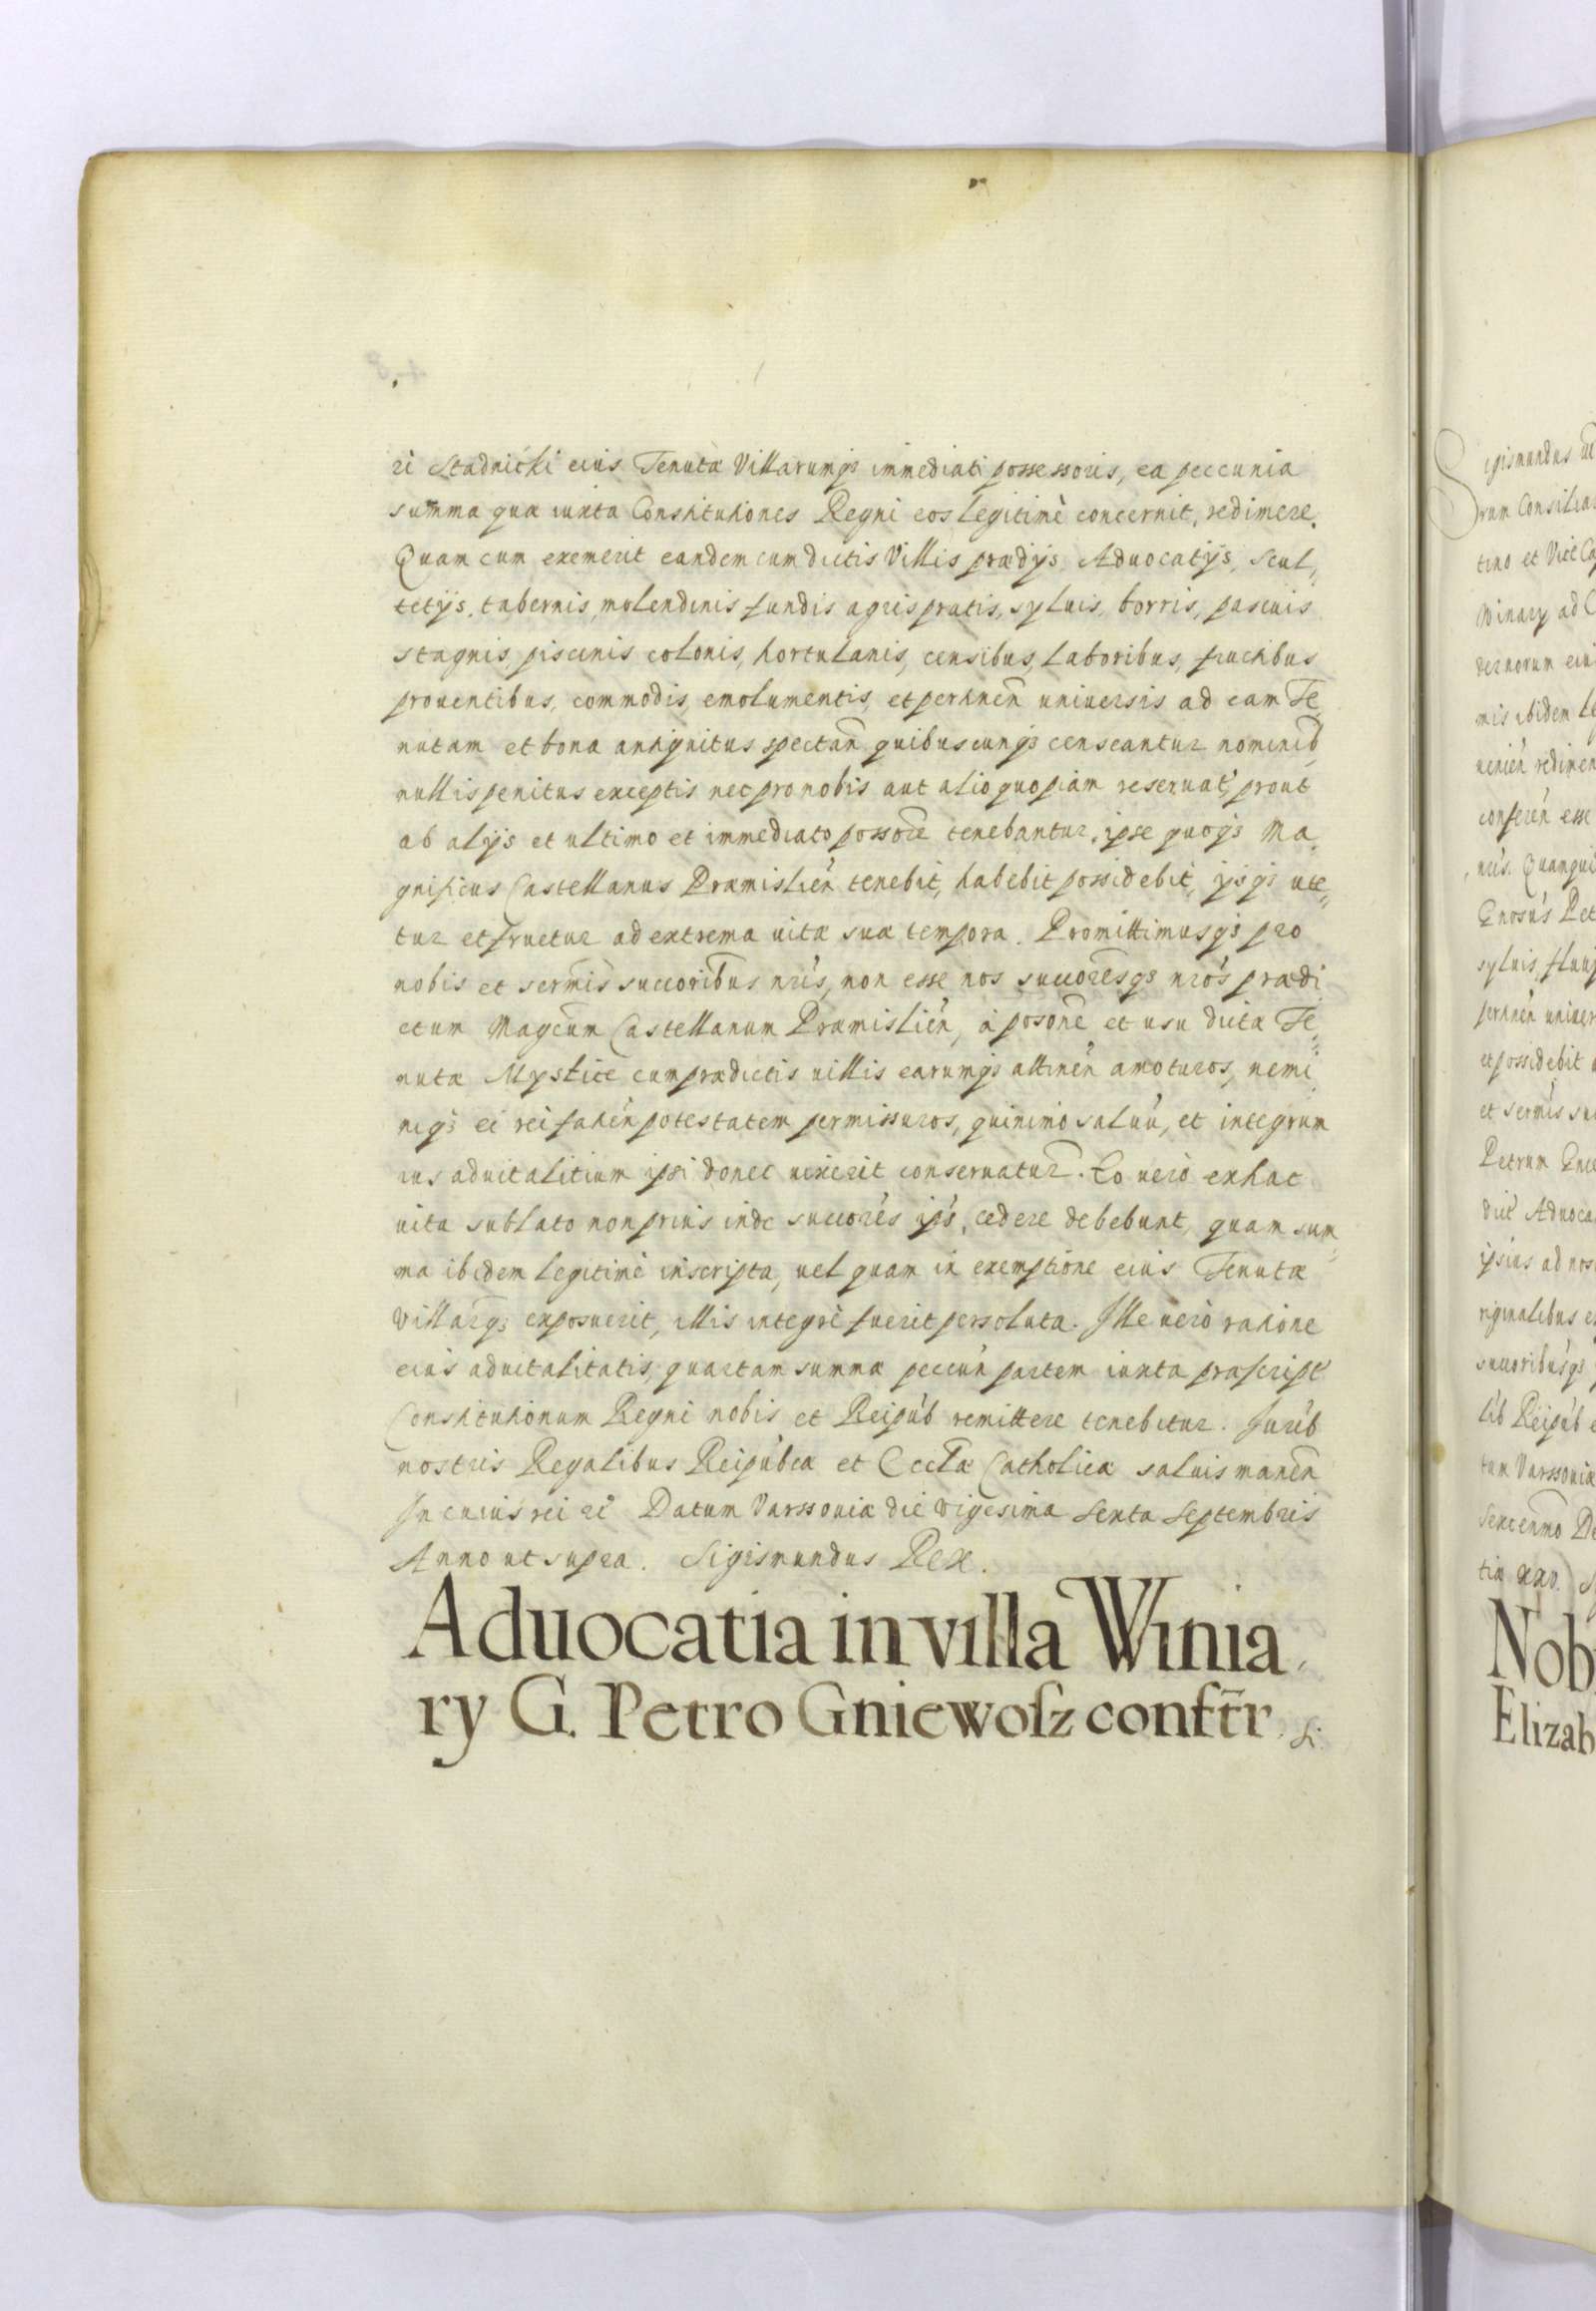 ri Stadnicki eius Tenutæ Villarumqȝ immediati possessoris, ea peccunia
summa quæ iuxta Constitutiones Regni eos legitimè concernit, redimere.
Quam cum exemerit eandem cum dictis Villis prædijs, Aduocatijs, Scul,,
tetijs, tabernis, molendinis fundis agris pratis, syluis, borris, pascuis
stagnis, piscinis colonis, hortulanis, censibus, laboribus, fructibus
prouentibus, commodis, emolumentis, et pertineñ uniuersis ad eam Te,,
nutam et bona antiquitus spectañ quibuscunqȝ censeantur nominib
nullis penitus exceptis nec pro nobis aut alio quopiam reseruat, prout
ab alijs et ultimo et immediato possore tenebantur, ipse quoqȝ Ma,,
gnificus Castellanus Præmislień tenebit, habebit possidebit, ijsqȝ ute,,
tur et fruetur ad extrema uitæ suæ tempora. Promittimusqȝ pro
nobis et sermis succoribus nris, non esse nos succoresqȝ nros prædi
ctum Magcum Castellanum Præmislień, à posone et usu dictæ Te,,
nutæ Mystice cum prædictis uillis earumqȝ attineñ amoturos, nemi,,
niqȝ ei rei facień potestatem permissuros, quinimo saluu, et integrum
ius aduitalitium ipsi donec uixerit conseruatur. Eo uerò ex hac
uita sublato non prius inde succores ips, cedere debebunt, quam sum,,
ma ibidem legitimè inscripta, uel quam in exemptione eius Tenutæ
Villarqȝ exposuerit, illis integrè fuerit persoluta. Ille uerò ratione
eius aduitalitatis, quartam summæ peccuń partem iuxta præscript
Constitutionum Regni nobis et Reipub remittere tenebitur. Jurib
nostris Regalibus Reipubcæ et Ecclæ Catholicæ saluis maneñ
In cuius rei ei Datum Varssouiæ die vigesima sexta Septembris
Anno ut supra. Sigismundus Rex.
Aduocatia in villa Winia,
ry G. Petro Gniewoſz conftr.
Sigismundus
rum Consilia
tino et Vice Ca
Winary ad C
dernorum eiu
mis ibidem le
nenień redimen
conferen esse
nris. Quamqui
Gnosus Pet
syluis, fluu
pertineń uniuer
et possidebit
et sermis su
Petrum Gnie
dict Aduoca
ipsius ad nos
riginalibus e
succoribusqȝ
lib Reipub e
tum Varssouiæ
Sexcenmo De
tiæ xxv. S
Nob
Elizab